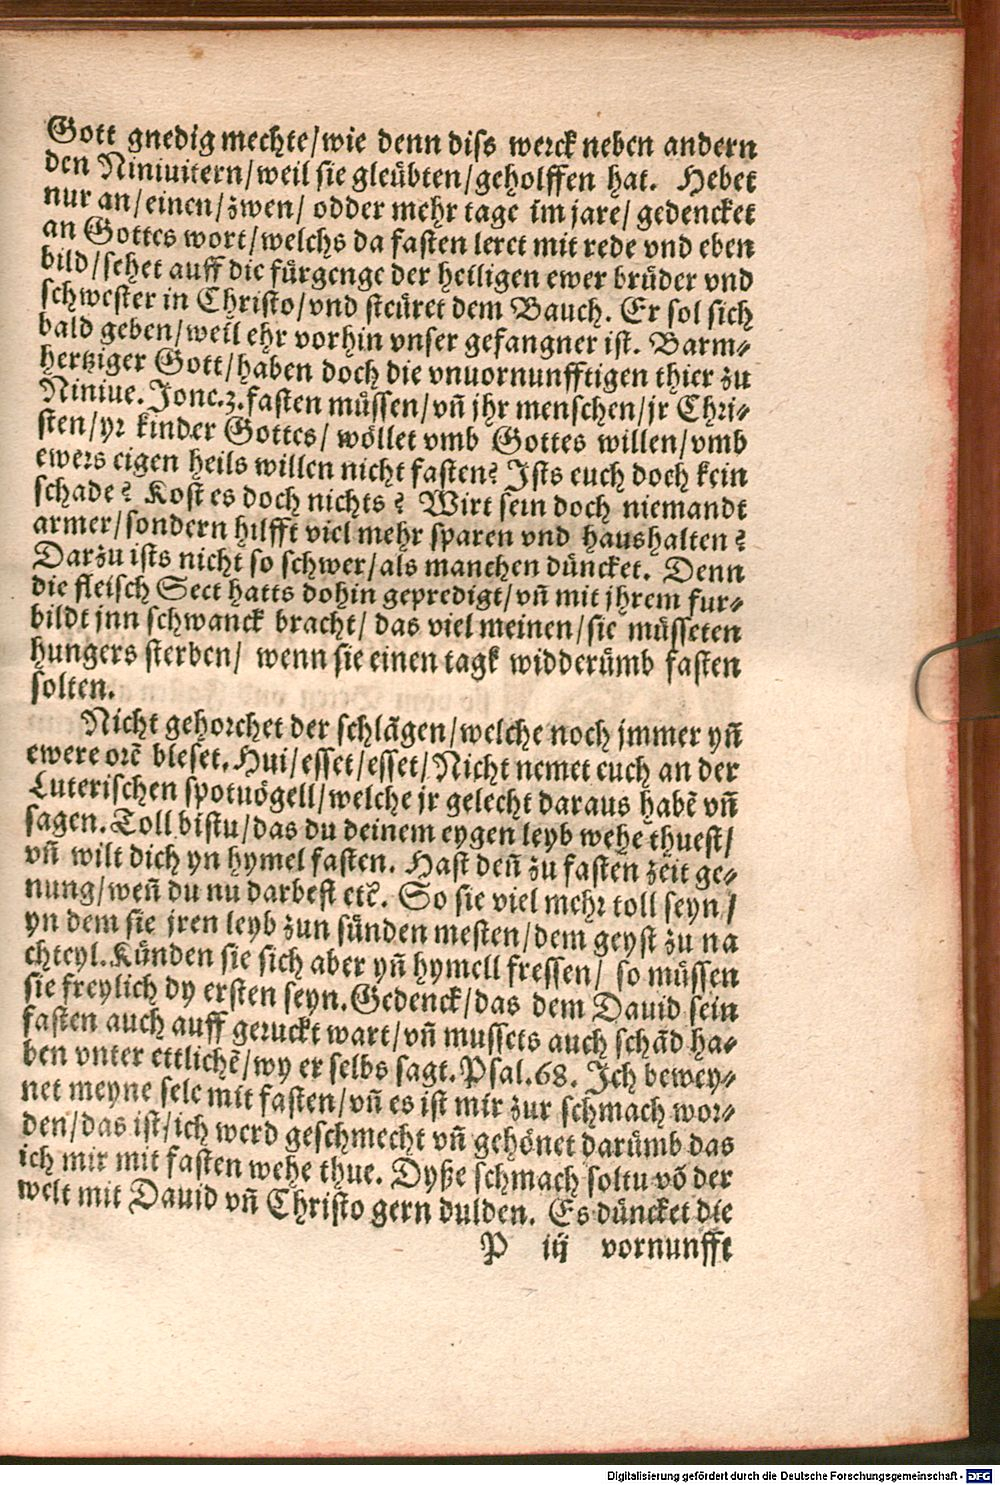 Gott gnedig mechte/wie denn diss werck neben andern
den Niniuitern/weil sie gleübten/geholffen hat. Hebet
nur an/einen/zwen/ odder mehr tage im jare/ gedencket
an Gottes wort/welchs da fasten leret mit rede vnd eben
bild/sehet auff die fürgenge der heiligen ewer brüder vnd
schwester in Christo/vnd steüret dem Bauch. Er sol sich
bald geben/weil ehr vorhin vnser gefangner ist. Barm-
hertziger Gott/haben doch die vnuornunfftigen thier zu
Niniue. Jone.3.fasten müssen/vn̄ jhr menschen/jr Chri-
sten/yr kinder Gottes/ wöllet vmb Gottes willen/vmb
ewers eigen heils willen nicht fasten? Ists euch doch kein
schade? Kost es doch nichts? Wirt sein doch niemandt
armer/sondern hilfft viel mehr sparen vnd haushalten?
Darzu ists nicht so schwer/als manchen düncket. Denn
die fleisch Sect hatts dohin gepredigt/vn̄ mit jhrem fur-
bildt jnn schwanck bracht/ das viel meinen/sie müsseten
hungers sterben/ wenn sie einen tagk widderümb fasten
solten.
Nicht gehorchet der schlãgen/welche noch jmmer yn̄
ewere orē bleset. Hui/esset/esset/Nicht nemet euch an der
Luterischen spotuögell/welche jr gelecht daraus habē vn̄
sagen. Toll bistu/das du deinem eygen leyb wehe thuest/
vn̄ wilt dich yn hymel fasten. Hast den̄ zu fasten zeit ge-
nung/wen̄ du nu darbest etc̄. So sie viel mehr toll seyn/
yn dem sie jren leyb zun sünden mesten/dem geyst zu na
chteyl. Künden sie sich aber yn̄ hymell fressen/ so müssen
sie freylich dy ersten seyn. Gedenck/das dem Dauid sein
fasten auch auff geruckt wart/vn̄ mussets auch schãd ha-
ben vnter ettlichē/wy er selbs sagt. Psal.68. Ich bewey-
net meyne sele mit fasten/vn̄ es ist mir zur schmach wor-
den/das ist/ich werd geschmecht vn̄ gehönet darümb das
ich mir mit fasten wehe thue. Dyße schmach soltu vō der
welt mit Dauid vn̄ Christo gern dulden. Es düncket die
P iij vornunfft
Digitalisierung gefördert durch die Deutsche Forschungsgemeinschaft - DFG